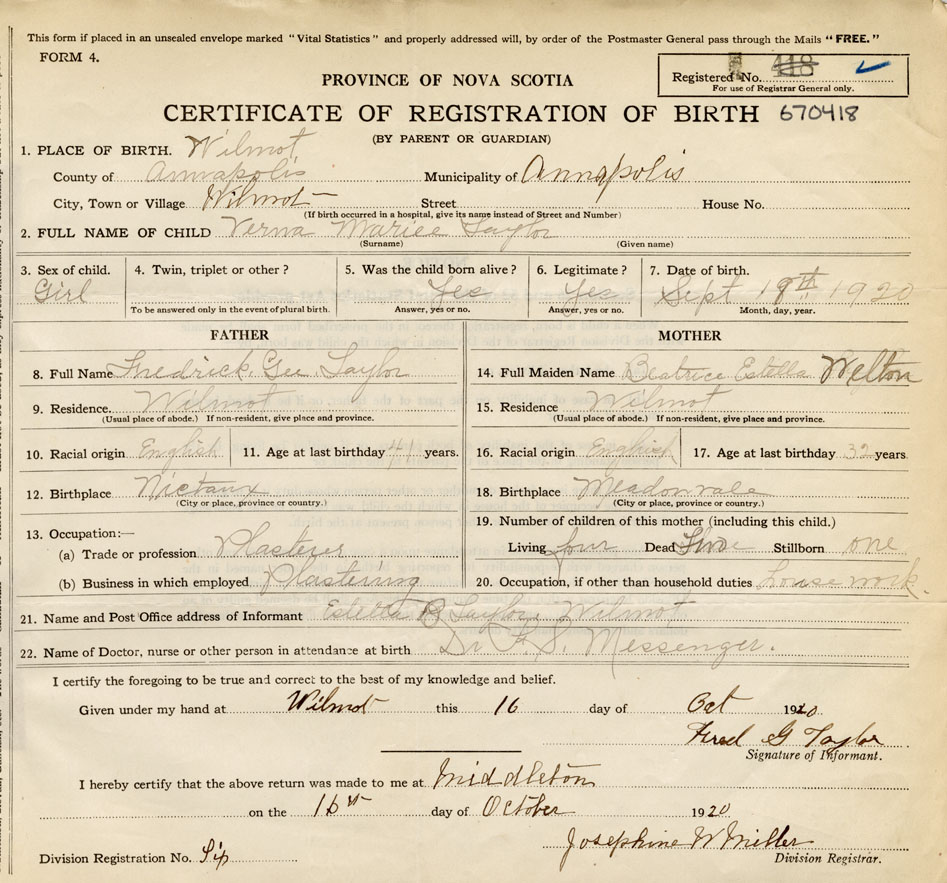 This form if placed in an unsealed envelope marked "Vital Statistics" and properly addressed will, by order of the Postmaster General pass through the Mails "FREE."
FORM 4.
Registered No. 418
For use of Registrar General only.
PROVINCE OF NOVA SCOTIA
CERTIFICATE OF REGISTRATION OF BIRTH 670418
(BY PARENT OR GUARDIAN)
1. PLACE OF BIRTH. Wilmot
County of Annapolis Municipality of Annapolis
City, Town or Village Wilmot Street House No.
(If birth occurred in a hospital, give its name instead of Street and Number)
2. FULL NAME OF CHILD Verna Mariee Taylor
(Surname) (Given name)
3. Sex of child. 4. Twin, triplet or other? 5. Was the child born alive? 6. Legitimate? 7. Date of birth.
Girl Yes Yes Sept 18th 1920
To be answered only in the event of plural birth. Answer, yes or no. Answer, yes or no. Month, day, year.
FATHER
8. Full Name Fredrick Gee Taylor
9. Residence. Wilmot
(Usual place of abode.) If non-resident, give place and province.
10. Racial origin English 11. Age at last birthday 41 years.
12. Birthplace Nictaux
(City or place, province or country.)
13. Occupation:—
(a) Trade or profession Plasterer
(b) Business in which employed Plastering
MOTHER
14. Full Maiden Name Beatrice Estella Welton
15. Residence Wilmot
(Usual place of abode.) If non-resident, give place and province.
16. Racial origin English 17. Age at last birthday 32 years.
18. Birthplace Meadonvale
(City or place, province or country.)
19. Number of children of this mother (including this child.)
Living four Dead Stillborn one
20. Occupation, if other than household duties house work.
21. Name and Post Office address of Informant Estella B Taylor, Wilmot
22. Name of Doctor, nurse or other person in attendance at birth Dr F. S. Messenger.
I certify the foregoing to be true and correct to the best of my knowledge and belief.
Given under my hand at Wilmot this 16 day of Oct 1920
Fred G Taylor
Signature of Informant.
I hereby certify that the above return was made to me at Middleton
on the 16th day of October 1920
Josephine W Miller
Division Registrar.
Division Registration No. Six